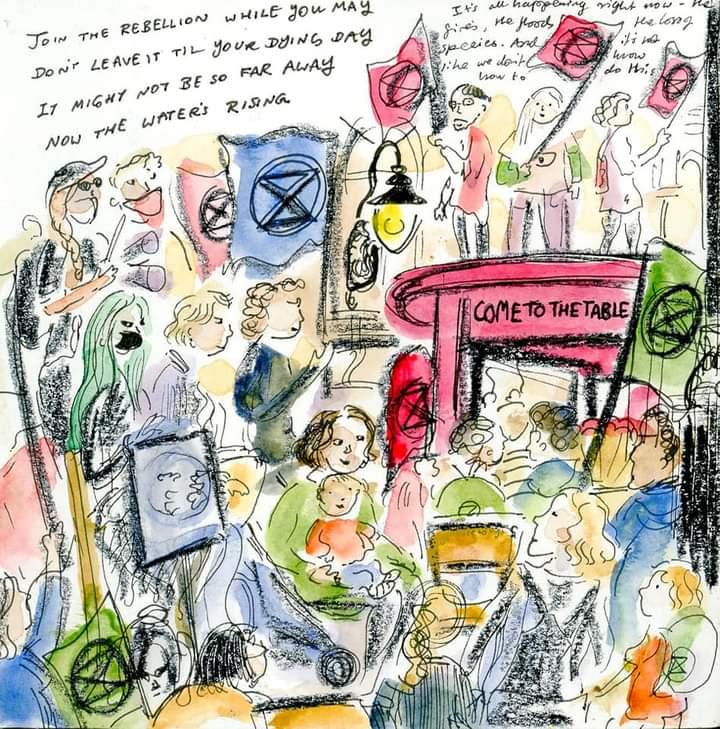 JOIN THE REBELLION WHILE YOU MAY
DON'T LEAVE IT TIL YOUR DYING DAY
IT MIGHT NOT BE SO FAR AWAY
NOW THE WATER'S RISING
It's all happening right now - the
fires, the floods, the losing
species. And it's not
like we don't know
how to do this.
COME TO THE TABLE